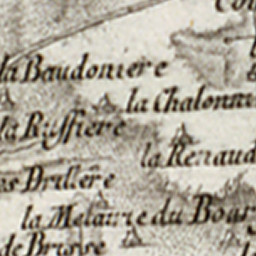 la Baudoniere
la Chalonni
la Ruffiere
la Renaud
es Drillere
la Melairie du Bour
de Brosse